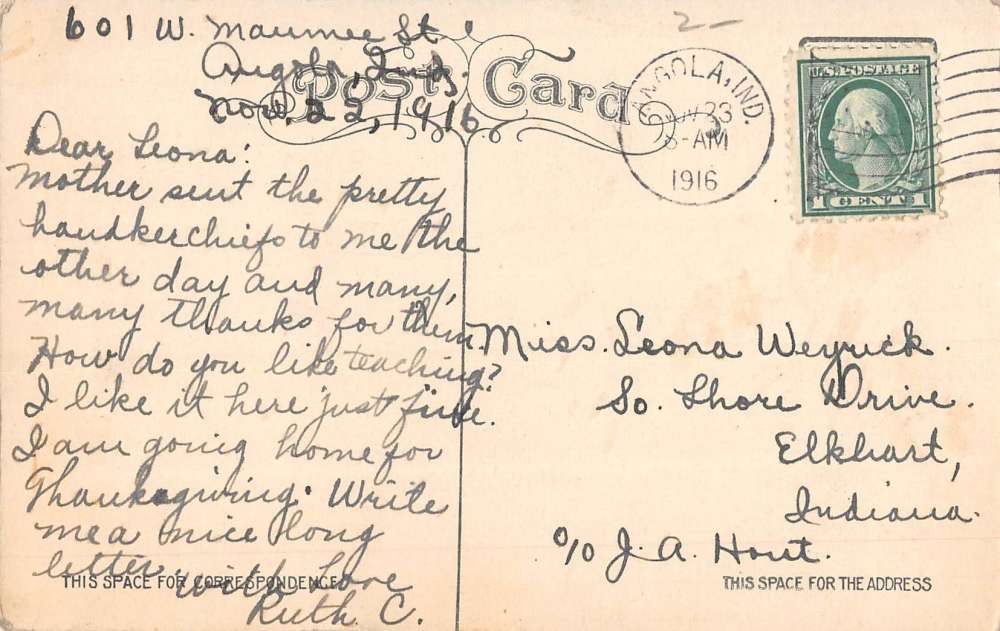 601 W. Maumee St
Angola, Ind.
Nov. 22, 1916
Post Card
2
ANGOLA, IND.
NOV 23
8-AM
1916
U.S. POSTAGE
1 CENT 1
Dear Leona:
Mother sent the pretty
handkerchiefs to me the
other day and many,
many thanks for them.
How do you like teaching?
I like it here just fine.
I am going home for
Thanksgiving. Write
me a nice long
letter. with Love
Ruth C.
THIS SPACE FOR CORRESPONDENCE
Miss. Leona Weyrick.
So. Shore Drive.
Elkhart,
Indiana.
c/o J. A. Hout.
THIS SPACE FOR THE ADDRESS